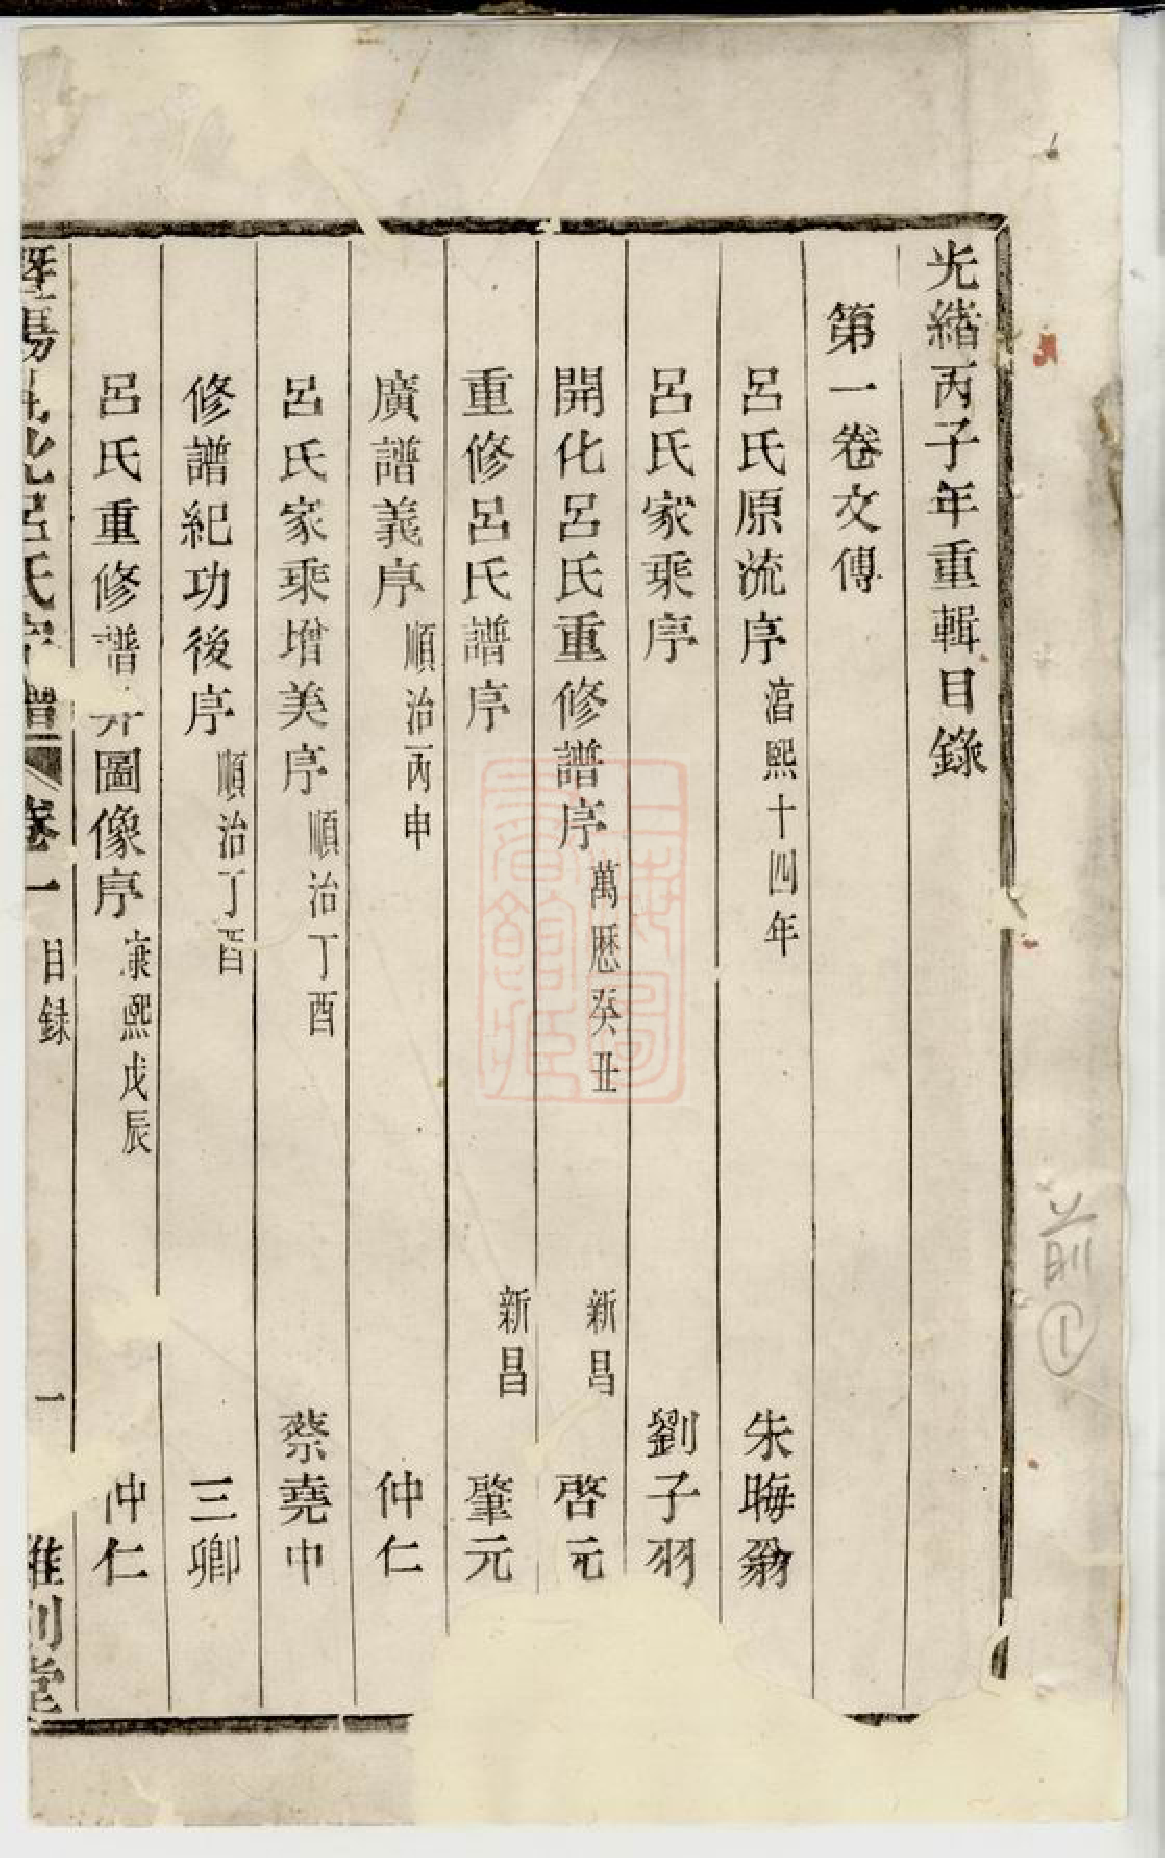 光緒丙子年重輯目錄
第一卷文傳
呂氏原流序 湻熙十四年 朱晦翁
呂氏家乘序 劉子羽
開化呂氏重修譜序 萬厯癸丑 新昌 啓元
重修呂氏譜序 新昌 肇元
廣譜義序 順治丙申 仲仁
呂氏家乘增美序 順治丁酉 蔡堯中
修譜紀功後序 順治丁酉 三卿
呂氏重修譜弁圖像序 康熙戊辰 仲仁
暨陽開化呂氏宗譜 卷一 目録 一 堂
前①